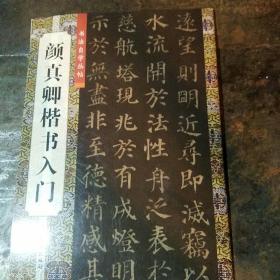 书法自学丛帖
颜真卿楷书入门
遙望則明近尋即滅竊以
水流開於法性舟泛表於
慈航塔現兆於有成燈明
示於無盡非至德精感其